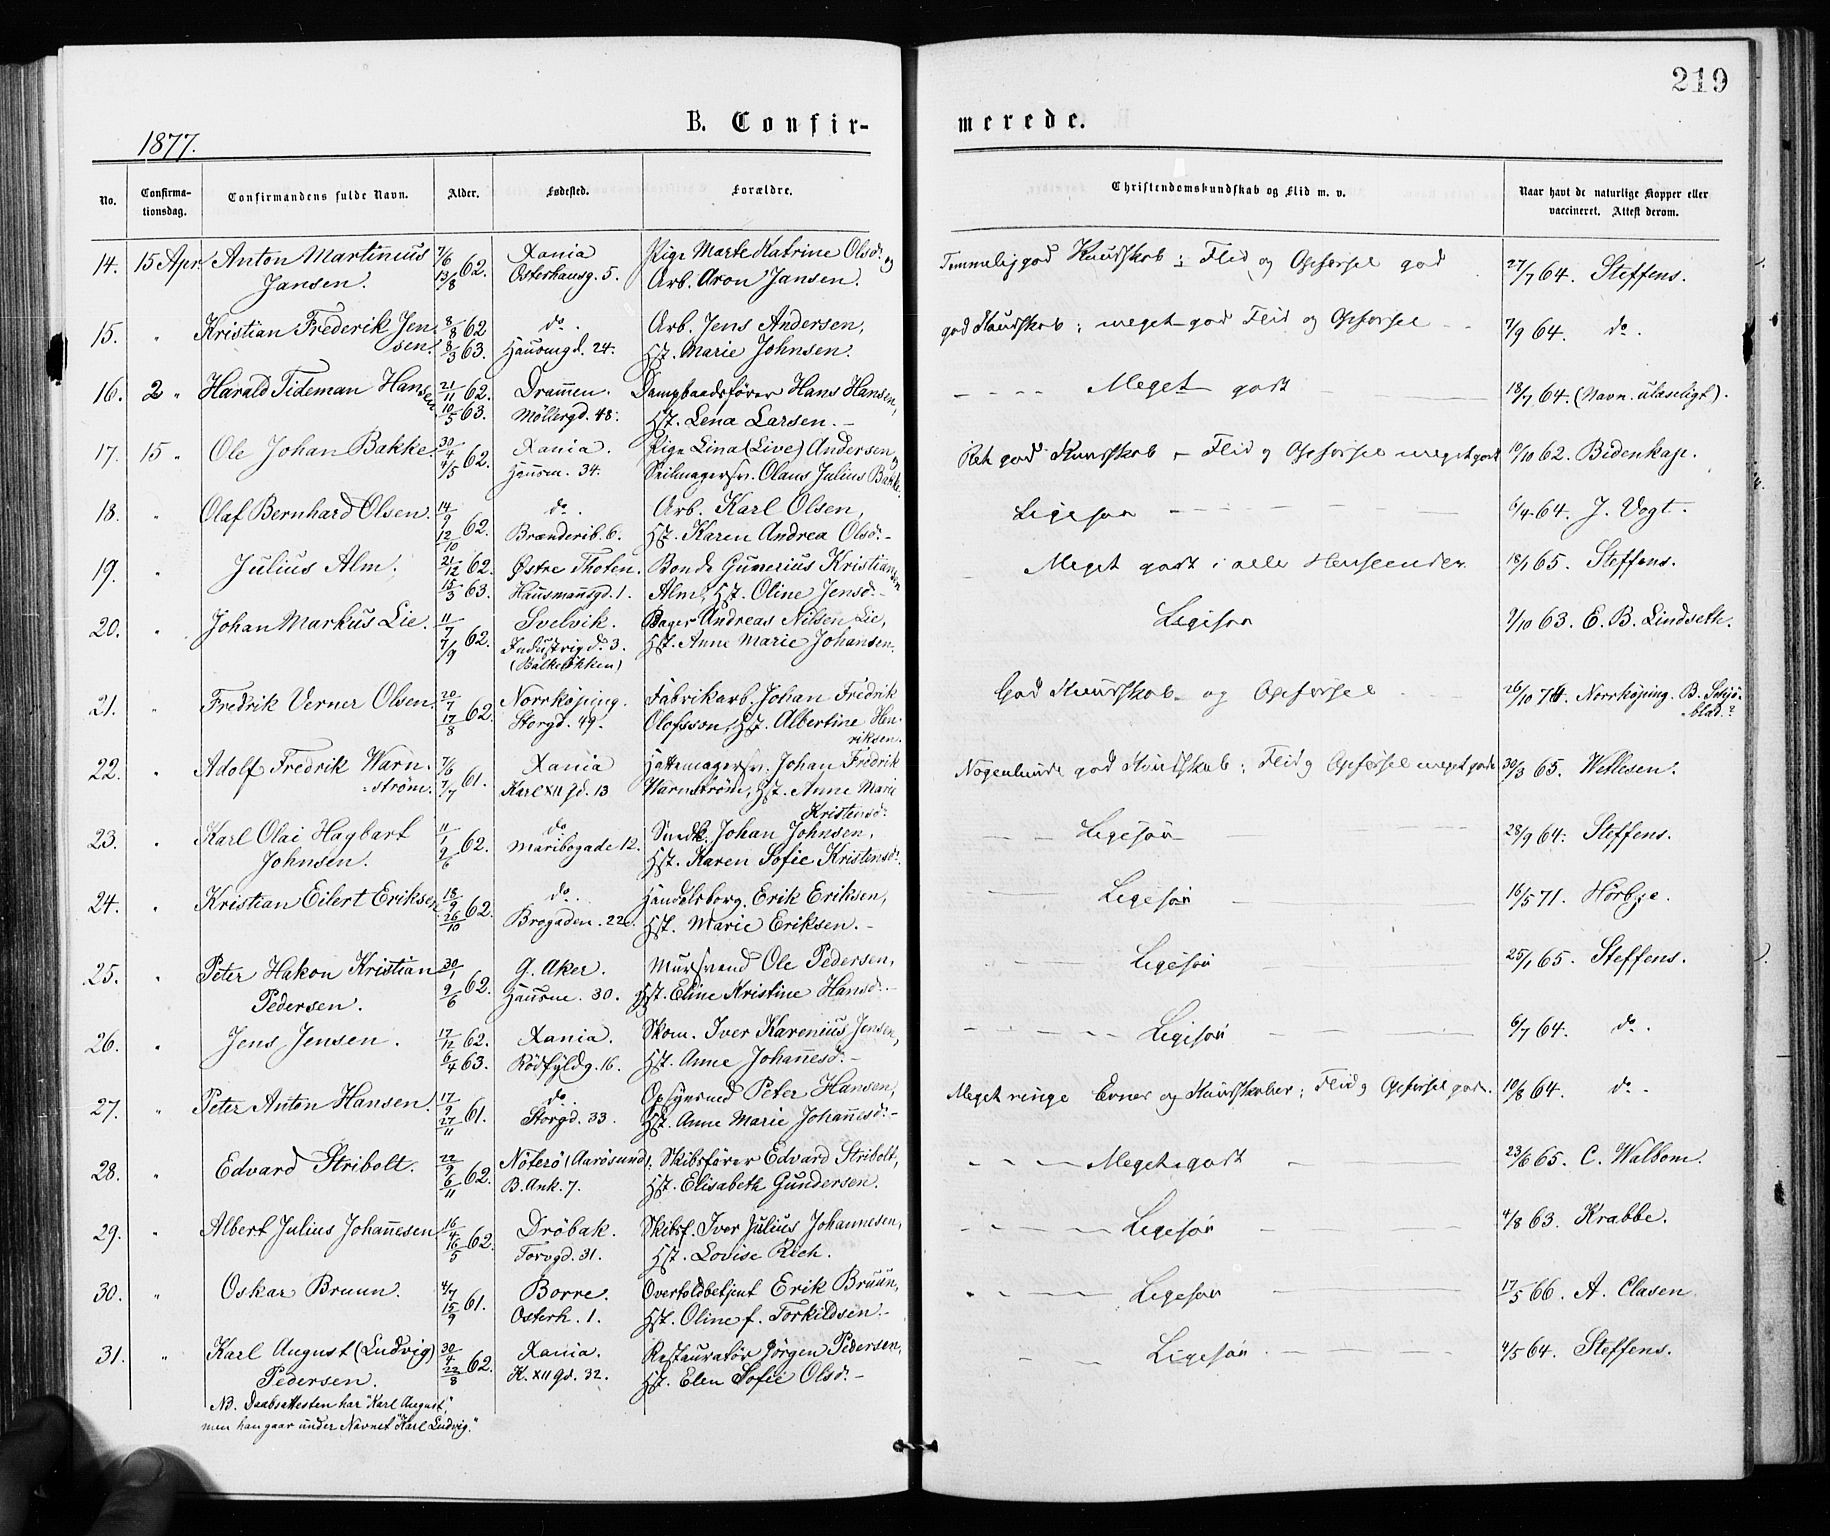 219
B. Confir-
merede.
1877.
No.
Confirma-
tionsdag.
Confirmandens fulde Navn.
Alder.
Fødested.
Forældre.
Christendomskundskab og Flid m. v.
Naar havt de naturlige Kopper eller
vaccineret. Attest derom.
14. 15 Apr. Anton Martinius 7/6 62. Xania Pige Marte Katrine Olsd. og Temmelig god Kundskab; Flid og Opførsel god 27/7 64. Steffens.
Jansen. 13/8 Osterhausg. 5. Arb. Aron Jansen.
15. " Kristian Frederik Jen- 8/8 62 do. Arb. Jens Andersen, god Kundskab; meget god Flid og Opførsel 7/9 64. do.
sen. 8/3 63. Hausmgd. 24. Hst. Marie Johnsen.
16. 2 " Harald Tideman Hansen 21/11 62. Drammen. Dampbaadsfører Hans Hansen, Meget godt 18/7 64. (Navn ulæseligt).
10/5 63. Möllergd. 48. Hst. Lena Larsen.
17. 15 " Ole Johan Bakke. 30/4 62. Xania. Pige Lina (Live) Andersen og Ret god Kundskab - Flid og Opførsel meget godt 19/10 62. Bidenkap.
4/5 Hausm. 34. Seilmagersv. Olaus Julius Bakke.
18. " Olaf Bernhard Olsen. 14/9 62. do. Arb. Karl Olsen, Ligesaa 6/4 64. J. Vogt.
12/10 Brænderib. 6. Hst. Karen Andrea Olsd.
19. " Julius Alm. 21/12 62. Østre Thoten. Bonde Gunerius Kristiansen Meget godt i alle Henseender 18/1 65. Steffens.
15/3 63. Hausmansgd. 1. Alm, Hst. Oline Jensd.
20. " Johan Markus Lie. 11/7 62. Svelvik. Bager Andreas Nilsen Lie, Ligesaa 7/10 63. E. B. Lindseth.
7/9 Industrigd. 3. Hst. Anne Marie Johansen.
(Balkeløkken)
21. " Fredrik Verner Olsen. 20/7 62. Norrköping. Fabrikarb. Johan Fredrik God Kundskab og Opførsel 26/10 74. Norrköping. B. Sehjö-
17/8 Storgd. 49. Olofsson, Hst. Albertine Hen- -blad.?
riksen.
22. " Adolf Fredrik Warn- 7/6 61. Xania Hattemagersv. Johan Fredrik Nogenlunde god Kundskab; Flid og Opførsel meget gode 30/3 65. Wetlesen.
ström. 7/7 Karl XII gd. 13 Warnström, Hst. Anne Marie
Kristensd.
23. " Karl Olai Hagbart 11/1 62. do. Smedk. Johan Johnsen, Ligesaa 28/9 64. Steffens.
Johnsen. 9/6 Maribogade 12. Hst. Karen Sofie Kristensd.
24. " Kristian Eilert Eriksen 18/9 62. do. Handelsborg. Erik Eriksen, Ligesaa 16/5 71. Hörbye.
26/10 Brogaden. 22c. Hst. Marie Eriksen.
25. " Peter Hakon Kristian 30/1 62. G. Aker. Mursvend Ole Pedersen, Ligesaa 25/1 65. Steffens.
Pedersen. 9/6 Hausm. 30. Hst. Eline Kristine Hansd.
26. " Jens Jensen. 17/12 62. Xania. Skom. Iver Karenius Jensen, Ligesaa 6/7 64. do.
6/4 63. Rödfyldg. 16. Hst. Anne Johannesd.
27. " Peter Anton Hansen. 17/9 61. do. Opsynsmd Peter Hansen, Meget ringe Evner og Kundskaber; Flid og Opførsel gode. 10/8 64. do.
27/11 Storgd. 33. Hst. Anne Marie Johannesd.
28. " Edvard Stribolt. 22/9 62. Nöterö (Aarösund). Skibsfører Edvard Stribolt, Meget godt 23/6 65. C. Walbom.
6/11 B. Ank. 7. Hst. Elisabeth Gundersen.
29. " Albert Julius Johannesen 16/4 62. Dröbak. Skibsf. Iver Julius Johannesen, Ligesaa 4/8 63. Krabbe.
16/5 Torvgd. 31. Hst. Lovise Rich.
30. " Oskar Bruun. 4/7 61. Borre. Overtoldbetjent Erik Bruun, Ligesaa 17/5 66. A. Clasen.
15/9 Osterh. 1. Hst. Oline f. Torkildsen.
31. " Karl August (Ludvig) 30/4 62. Xania. Restauratör Jörgen Pedersen, Ligesaa 4/5 64. Steffens.
Pedersen. 22/8 K. XII gd. 32. Hst. Elen Sofie Olsd.
NB. Daabsattesten har "Karl August",
men han gaar under Navnet "Karl Ludvig."